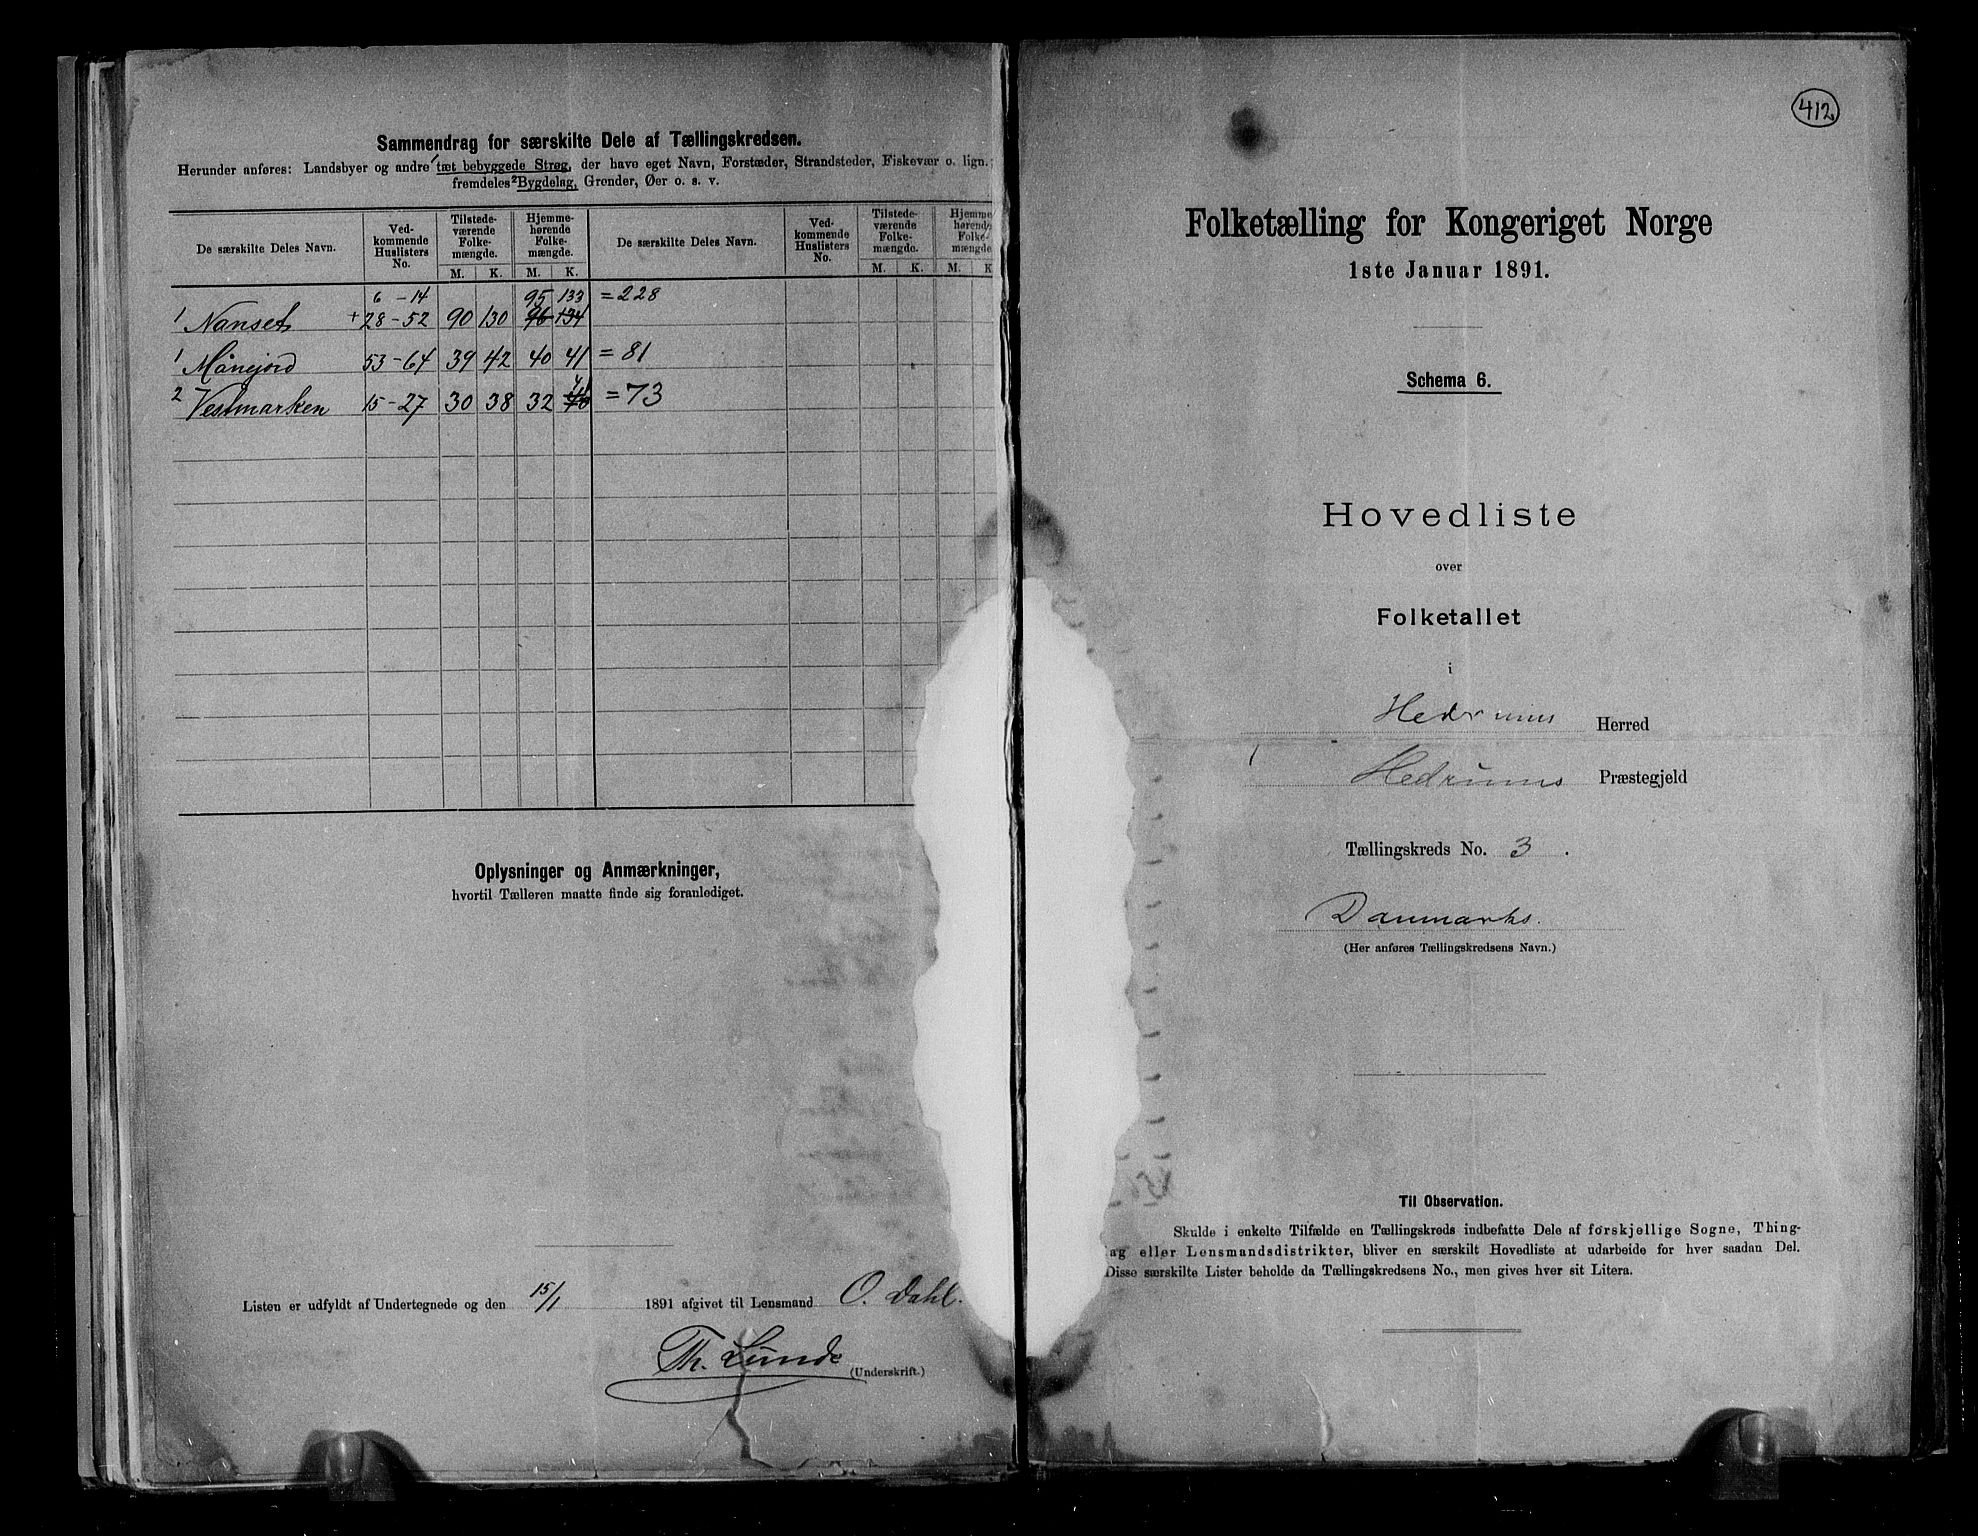 Sammendrag for særskilte Dele af Tællingskredsen.
Herunder anføres: Landsbyer og andre 1 tæt bebyggede Strøg, der have eget Navn, Forstæder, Strandsteder, Fiskevær o. lign.;
fremdeles 2 Bygdelag, Grender, Øer o. s. v.
De særskilte Deles Navn. Ved-kommende Huslisters No. Tilstede-værende Folke-mængde. M. K. Hjemme-hørende Folke-mængde. M. K. De særskilte Deles Navn. Ved-kommende Huslisters No. Tilstede-værende Folke-mængde. M. K. Hjemme-hørende Folke-mængde. M. K.
6 - 14 95 133 = 228
1 Nanset + 28 - 52 90 130 96 134
1 Månejord 53 - 64 39 42 40 41 = 81
2 Vestmarken 15 - 27 30 38 32 41 40 = 73
Oplysninger og Anmærkninger,
hvortil Tælleren maatte finde sig foranlediget.
Listen er udfyldt af Undertegnede og den 15/1 1891 afgivet til Lensmand O. Dahl.
Th. Lunde
(Underskrift.)
412
Folketælling for Kongeriget Norge
1ste Januar 1891.
Schema 6.
Hovedliste
over
Folketallet
i
Hedrums Herred
Hedrums Præstegjeld
Tællingskreds No. 3.
Danmarks.
(Her anføres Tællingskredsens Navn.)
Til Observation.
Skulde i enkelte Tilfælde en Tællingskreds indbefatte Dele af forskjellige Sogne, Thing-
lag eller Lensmandsdistrikter, bliver en særskilt Hovedliste at udarbeide for hver saadan Del.
Disse særskilte Lister beholde da Tællingskredsens No., men gives hver sit Litera.